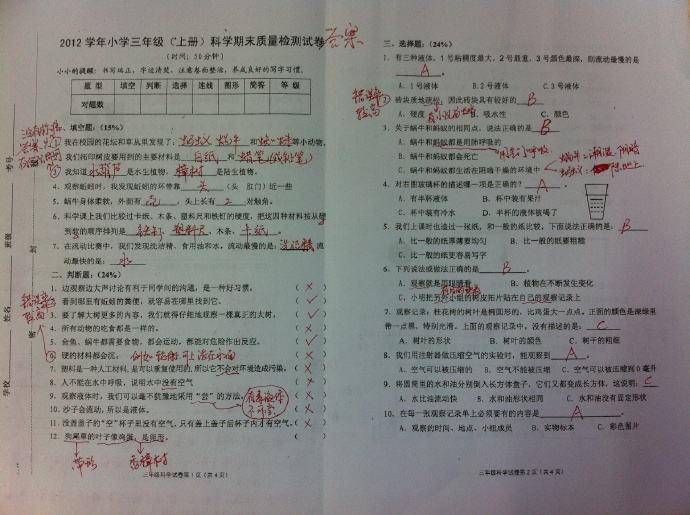 2012 学年小学三年级(上册)科学期末质量检测试卷 答案
(时间:50分钟)
小小的提醒:书写端正,字迹清楚,注意卷面整洁,养成良好的写字习惯。
题 型 填空 判断 选择 连线 图形 简答 等 级
对题数
一、填空题:(15%)
1. 我在校园的花坛和草丛里发现了、蚂蚁 蜗牛 和 等小动物。
2. 我们拓印树皮要用到的主要材料是 白纸 和 蜡笔
3. 我知道 水葫芦 是水生植物, 樟树 是陆生植物。
4. 观察蚯蚓时,我发现蚯蚓的环带靠 头 (头 肛门)近一些
5. 蜗牛身体柔软,外面有 壳 ,头上长有 2 对触角。
6. 科学课上我们比较过卡纸、木条、塑料尺和铁钉的硬度,把这四种材料按从硬
到软的顺序排列是 铁钉 塑料尺、木条、卡纸。
7. 在流动比赛中,我们发现洗洁精、食用油和水,流动最慢的是: 洗洁精 流
动最快的是: 水
二、判断题:(24%)
1. 边观察边大声讨论有利于同学间的沟通,是一种好习惯。 ( × )
2. 看到那里有蚯蚓的粪便,就容易在哪里找到它。 ( ✓ )
3. 要了解大树更多的内容,我们就得仔细地观察一棵真正的大树。 ( ✓ )
4. 所有动物的吃食都是一样的。 ( × )
5. 金鱼、蜗牛都需要食物,都会运动,都能对危险作出反应。 ( ✓ )
6. 硬的材料都会沉。 ( × )
7. 塑料是一种人工材料,是可以重复使用的,所以它不会对环境造成污染。 ( × )
8. 人不能在水中呼吸,说明水中没有空气 ( × )
9. 观察液体时,我们可以毫不犹豫地采用“尝”的方法。 ( × )
10. 沙子会流动,所以是液体。 ( × )
11. 没盖盖子的“空”杯子里没有空气,只有盖上盖子后杯子内才有空气。 ( × )
12. 狗尾草的叶子像鸡蛋,是卵形。 ( × )
带形
三年级科学试卷第1页(共4页)
学校 姓名 班级 考号
密 封
三、选择题:(24%)
1. 有三种液体,1号粘稠度最大,2号最重,3号颜色最深,则流动最慢的是
A 。
A. 1号液体 B. 2号液体 C. 3号液体
2. 砖块质地疏松,因此砖块具有较好的 B
A. 硬度 B. 吸水性 C. 颜色
3. 关于蜗牛和蚂蚁的相同点,说法正确的是 B
A. 蜗牛和蚂蚁都是用肺呼吸的
B. 蜗牛和蚂蚁都会死亡
C. 蜗牛和蚂蚁都生活在阴暗干燥的环境中
4. 对右图玻璃杯的描述哪一项是正确的? A 。
A. 有半杯液体 B. 杯中装有果汁
C. 杯中装有冷水 D. 半杯的液体被喝了
5. 我们上课时也造过一张纸,和一般的纸比较,下面说法正确的是: B
A. 比一般的纸厚薄要均匀 B. 比一般的纸要粗糙
C. 比一般的纸更容易写字
6. 下列说法或做法正确的是 B 。
A. 观察就是用眼睛看 B. 植物在不断发生变化
C. 小明把另外小组的树皮拓片贴在自己的观察记录上
7. 观察记录:桂花树的树叶是椭圆形的,比鸡蛋大一点点。正面的颜色是深绿里
带一点黑,特别光滑。上面的观察记录中,没有描述的是: C
A. 树叶的形状 B. 树叶的颜色 C. 树干的粗细
8. 我们用注射器做压缩空气的实验时,能观察到 A 。
A. 空气可以被压缩的 B. 空气不能被压缩 C. 空气可以被压缩到0毫升
9. 将圆筒里的水和油分别倒入长方体盒子,它们又都变成长方体,这说明: C
A. 水比油流动快 B. 水和油形状相同 C. 水和油没有固定形状
10. 在每一张观察记录单上必须要有的内容是 A
A. 观察的时间、地点、小组成员 B. 实物标本 C. 彩色图片
三年级科学试卷第2页(共4页)